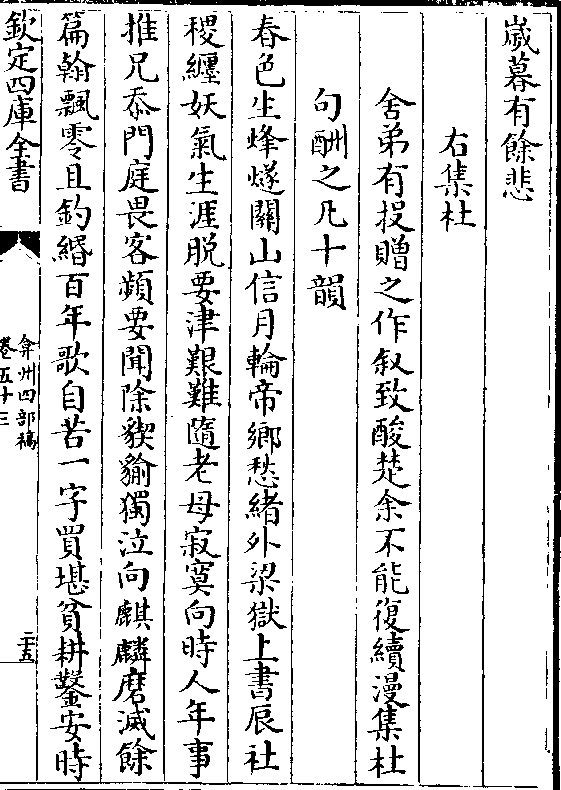 歲暮有餘悲
右集杜
舍弟有投贈之作叙致酸楚余不能復續漫集杜
句酬之凡十韻
春色生烽燧關山信月輪帝鄉愁緒外梁獄上書辰社
稷纏妖氣生涯脱要津艱難隨老母寂寞向時人年事
推兄忝門庭畏客頻要聞除猰貐獨泣向麒麟磨滅餘
篇翰飄零且釣緡百年歌自苦一字買堪貧耕鑿安時
欽定四庫全書
弇州四部稿
卷五十三
二五